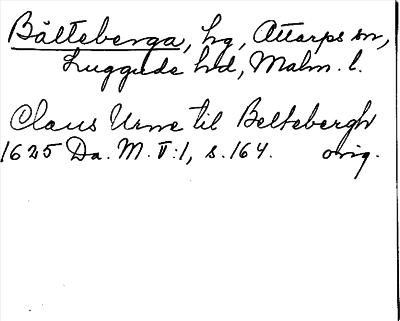 Bälteberga, hg, Ottarps sn,
Luggude hd, Malm. l.
Claus Urne til Beltebergh
1625 Da. M. V:1, s. 164. orig.